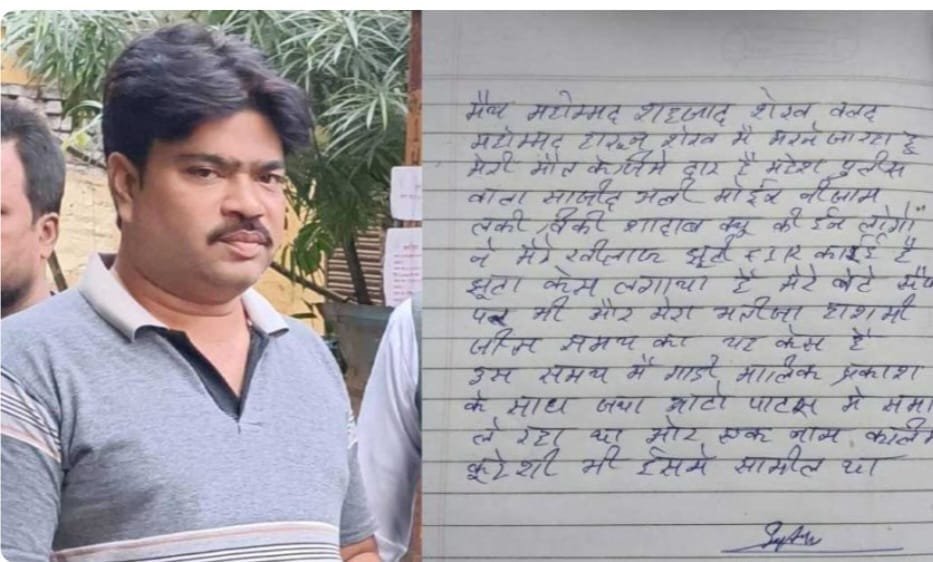 मैय महोम्मद शहजाद शेख वलद
महोम्मद हारून शेख मै मरने जा रहा हू
मेरी मौत के जिमे दार है महेश पुलीस
वाला साजीद अली मोईन नीजाम
लकी विकी शादाब क्यु की ईन लोगो
ने मेरे खीलाफ झूटी FIR काई है
झूटा केस लगाया है मेरे बेटे
पर भी और मेरा भतीजा हाशमी
जीस समय का यह केस है
इस समय मै गाडी मालिक प्रकाश
के साथ जया ओटो पार्टस मे समा
ले रहा था ओर एक नाम कलीम
कूरेशी भी ईसमे सामील था